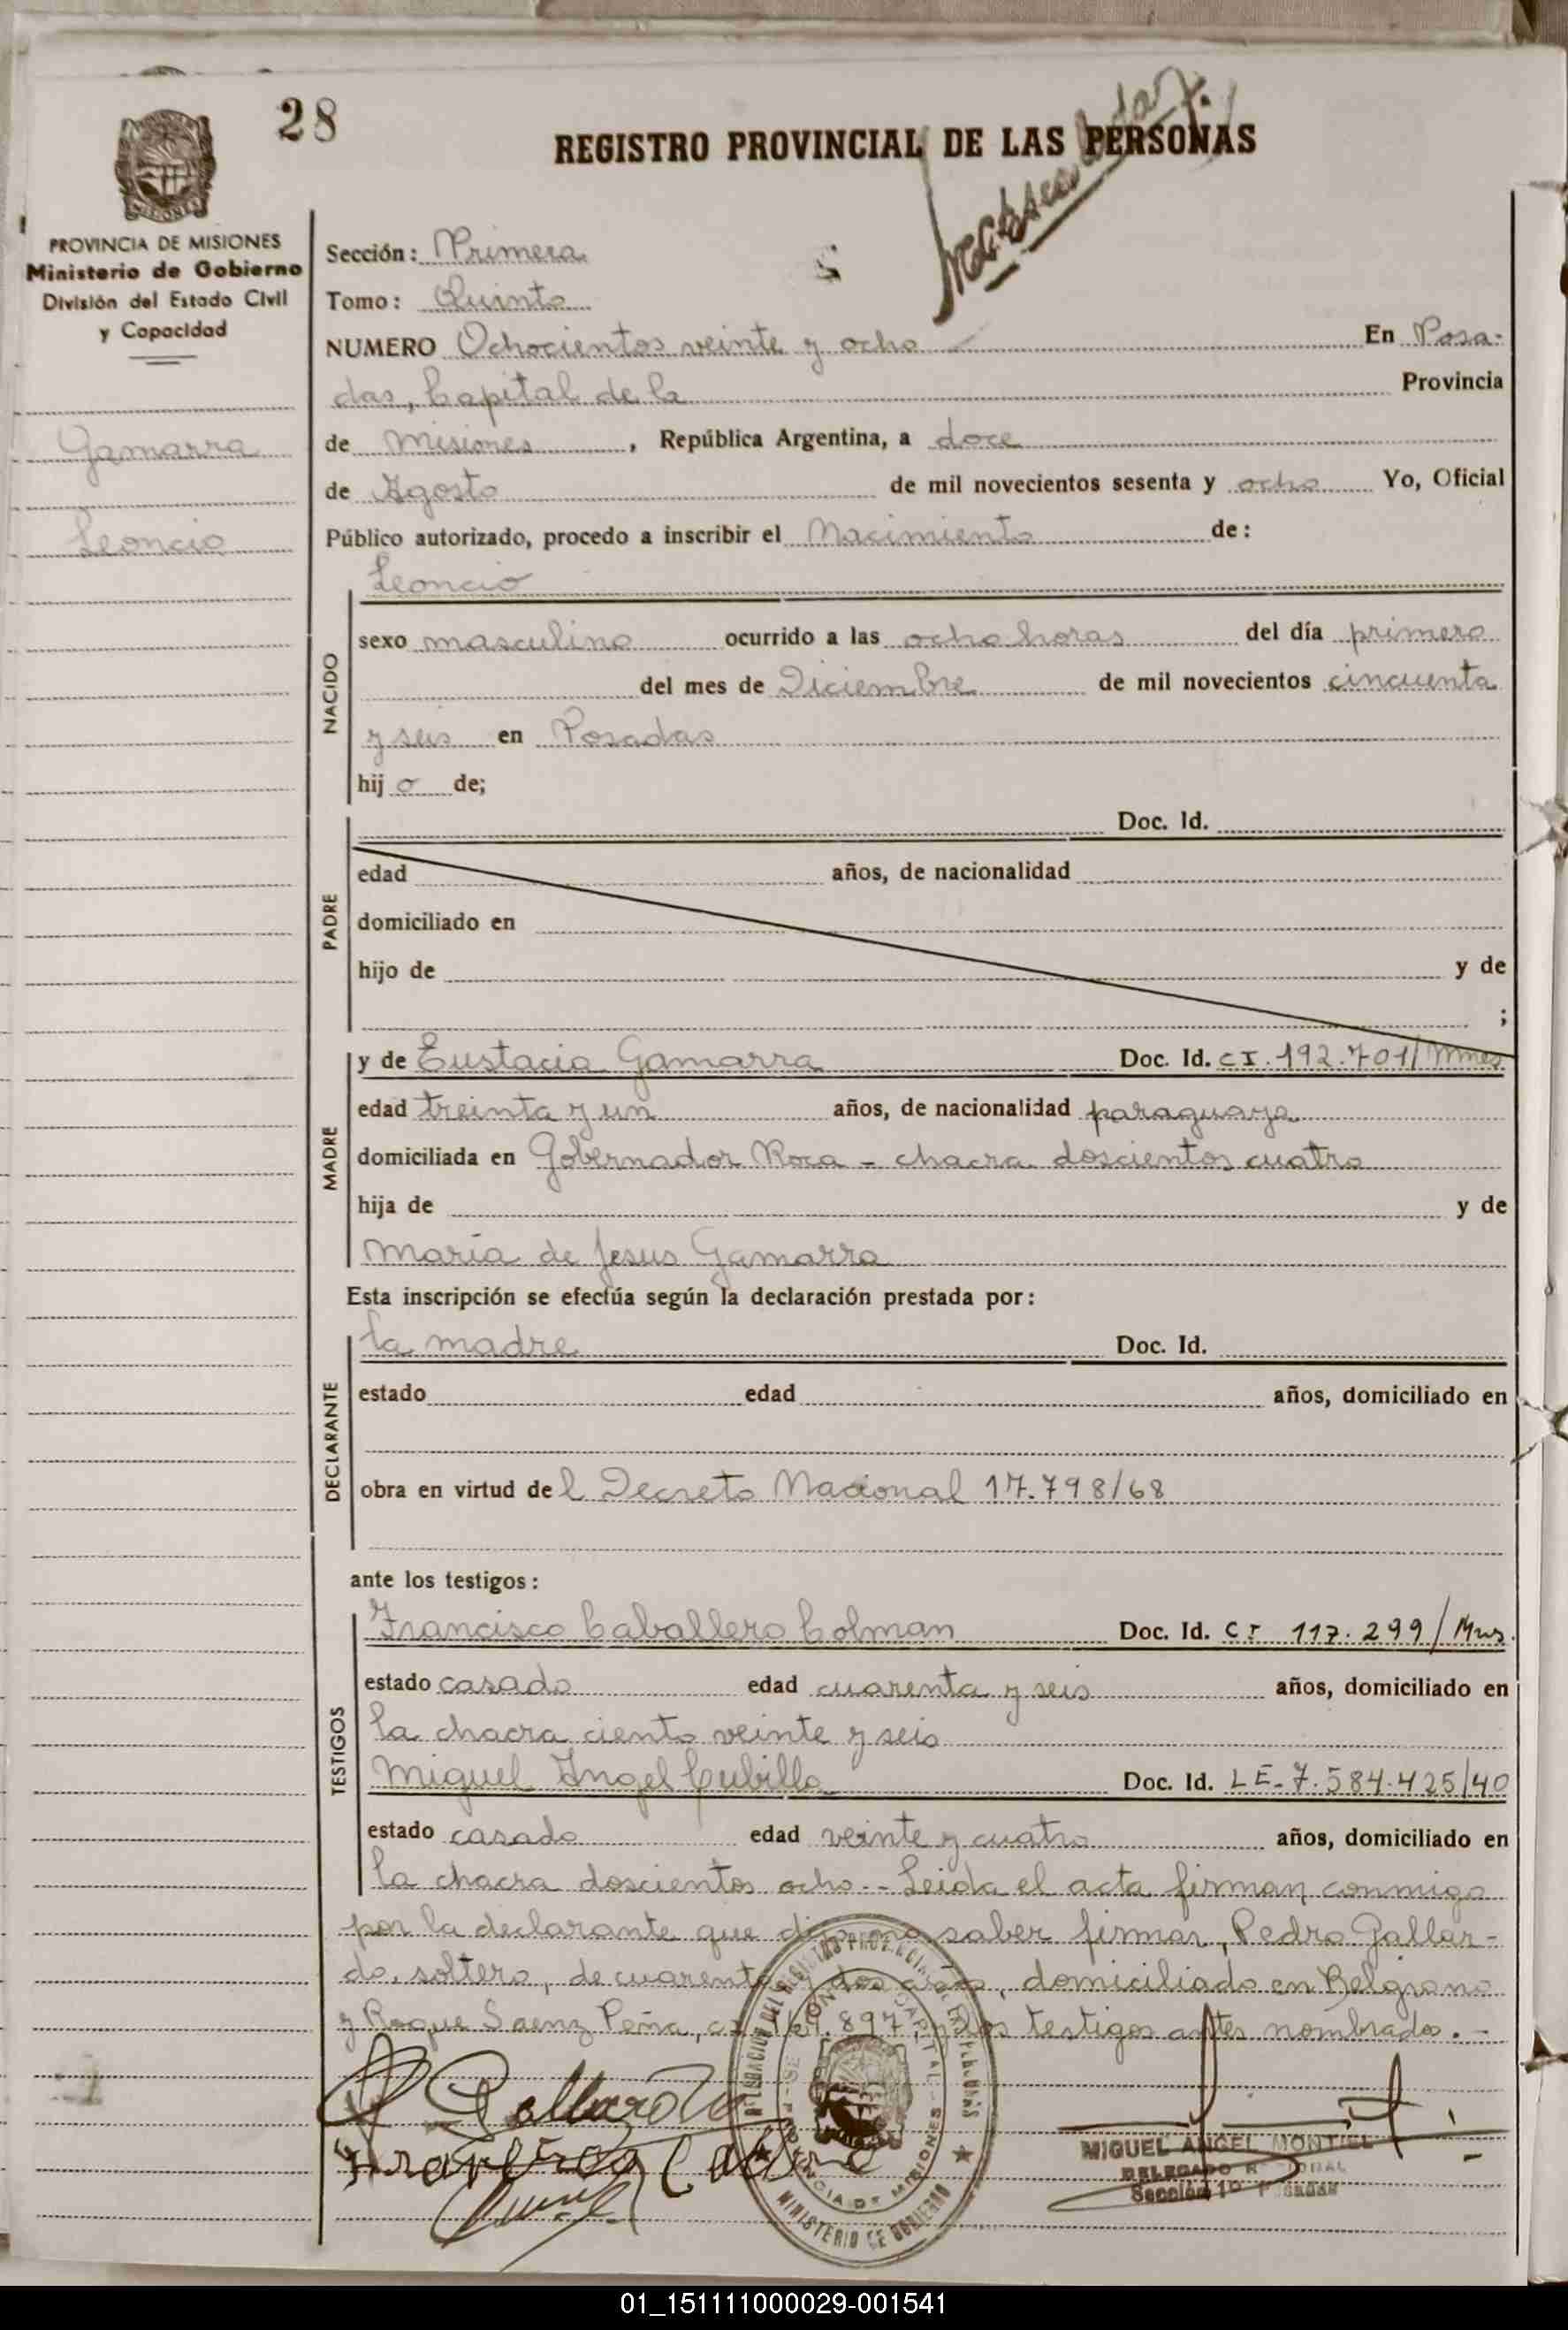 28
REGISTRO PROVINCIAL DE LAS PERSONAS
MISIONES
PROVINCIA DE MISIONES
Ministerio de Gobierno
División del Estado Civil
y Capacidad
Gamarra
Leoncio
Sección: Primera
Tomo: Quinto
NUMERO Ochocientos veinte y ocho En Posa-
das, Capital de la Provincia
de Misiones, República Argentina, a doce
de Agosto de mil novecientos sesenta y ocho Yo, Oficial
Público autorizado, procedo a inscribir el Nacimiento de:
Leoncio
NACIDO
sexo masculino ocurrido a las ocho horas del día primero
del mes de Diciembre de mil novecientos cincuenta
y seis en Posadas
hijo de;
PADRE
Doc. Id.
edad años, de nacionalidad
domiciliado en
hijo de y de
;
MADRE
y de Eustacia Gamarra Doc. Id. CI. 192.701/Mnes
edad treinta y un años, de nacionalidad paraguaya
domiciliada en Gobernador Roca - chacra doscientos cuatro
hija de y de
María de Jesus Gamarra
Esta inscripción se efectúa según la declaración prestada por:
DECLARANTE
la madre Doc. Id.
estado edad años, domiciliado en
obra en virtud del Decreto Nacional 17.798/68
ante los testigos:
TESTIGOS
Francisco Caballero Colman Doc. Id. CI 117.299/Mns.
estado casado edad cuarenta y seis años, domiciliado en
la chacra ciento veinte y seis
Miguel Angel Cubilla Doc. Id. LE-7.584.425/40
estado casado edad veinte y cuatro años, domiciliado en
la chacra doscientos ocho.- Leida el acta firman conmigo
por la declarante que dijo no saber firmar, Pedro Gallar-
do, soltero, de cuarenta y dos años, domiciliado en Belgrano
y Roque Saenz Peña, los testigos antes nombrado.-
P Gallardo
MIGUEL ANGEL MONTIEL
Sección 1º Posadas
MINISTERIO DE GOBIERNO
01_151111000029-001541